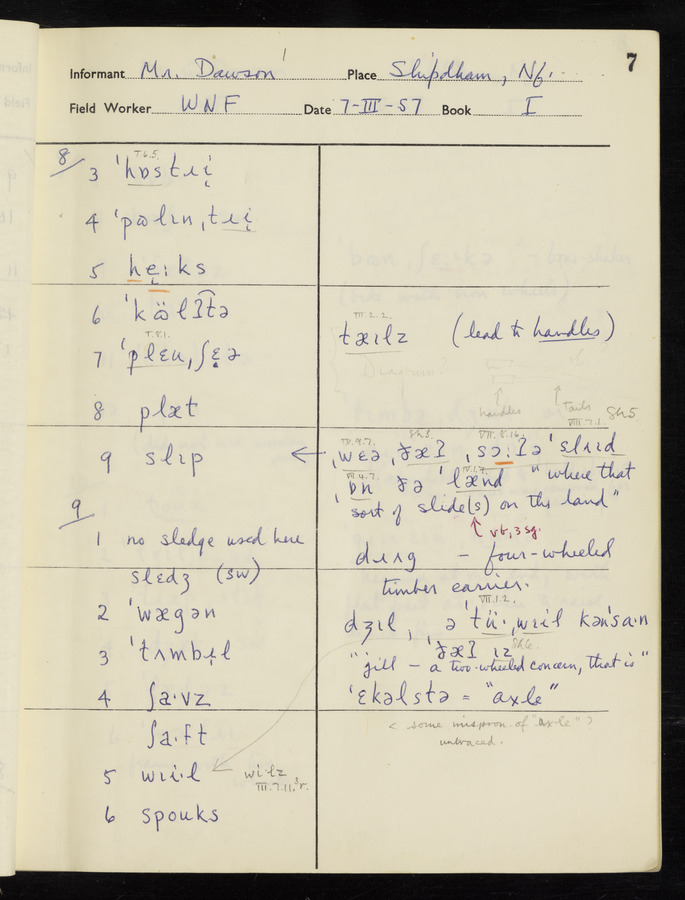 7
Informant Mr. Dawson Place Shipdham, Nf.
Field Worker WNF Date 7-III-57 Book I
8/ 3 ˈhɒstɹi̞
4 ˈpɒlɪn ˌtɹi̞
5 he̞ːks
6 ˈkölɪtə
7 ˈplɛu ˌʃɛ̣ə
8 plæt
9 slɪp
9/
1 no sledge used here
slɛdʒ (sw)
2 ˈwægən
3 ˈtʌmbɪl
4 ʃaˑvz
ʃaˑft
5 wɪiˑl ← wiˑlz
6 spouks
III.2.2.
tæɪlz (lead to handles)
handles tails
VIII.7.1. Sh5
←
ˌwɛə ˌðæʔ ˌsɔːʔə ˈslɑɪd
ˌɒn ðə ˈlænd "where that
sort of slide(s) on the land"
↑ vb, 3 sg.
dɹʌg – four-wheeled
timber carrier.
VII.1.2.
dʒɪl, ˌə ˈtüˑ ˌwɪil kənˈsaˑn
ˌˈðæʔ ɪz
"jill – a two-wheeled concern, that is"
ˈɛkəlstə = "axle"
< some mispron. of "axle"?
untraced.